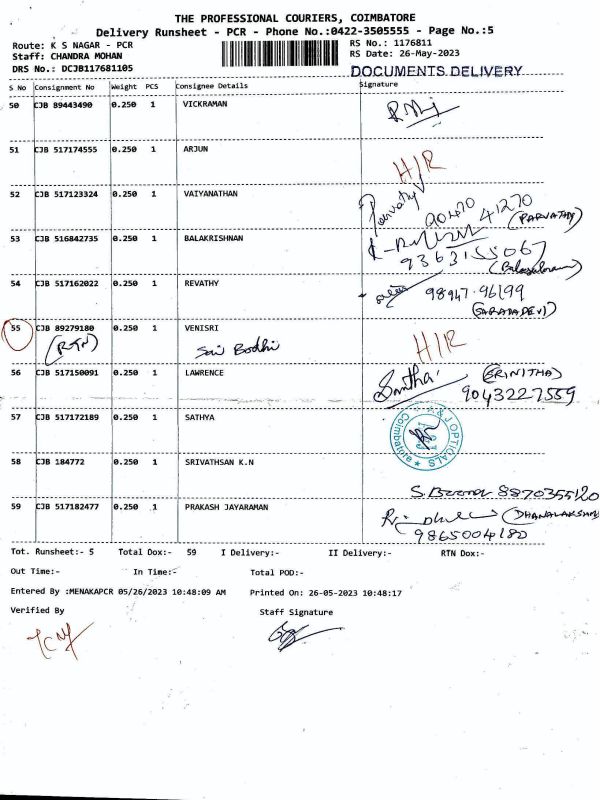 THE PROFESSIONAL COURIERS, COIMBATORE
Delivery Runsheet - PCR - Phone No.:0422-3505555 - Page No.:5
Route: K S NAGAR - PCR
RS No.: 1176811
Staff: CHANDRA MOHAN
RS Date: 26-May-2023
DRS No.: DCJB117681105
DOCUMENTS DELIVERY
S No Consignment No Weight PCS Consignee Details Signature
50 CJB 89443490 0.250 1 VICKRAMAN
51 CJB 517174555 0.250 1 ARJUN
H/R
52 CJB 517123324 0.250 1 VAIYANATHAN
Parvathy 90470 41270
(PARVATHY)
53 CJB 516842735 0.250 1 BALAKRISHNAN
9363155067
54 CJB 517162022 0.250 1 REVATHY
98947-96199
(SARADADEVI)
55 CJB 89279180 0.250 1 VENISRI
(RTN) Sai Bodhi H/R
56 CJB 517150091 0.250 1 LAWRENCE
(SRINITHA)
9043227559
57 CJB 517172189 0.250 1 SATHYA
A & J OPTICALS
Coimbatore
58 CJB 184772 0.250 1 SRIVATHSAN K.N
8870355120
59 CJB 517182477 0.250 1 PRAKASH JAYARAMAN
(DHANALAKSHMI)
9865004180
Tot. Runsheet:- 5 Total Dox:- 59 I Delivery:- II Delivery:- RTN Dox:-
Out Time:- In Time:- Total POD:-
Entered By :MENAKAPCR 05/26/2023 10:48:09 AM Printed On: 26-05-2023 10:48:17
Verified By Staff Signature